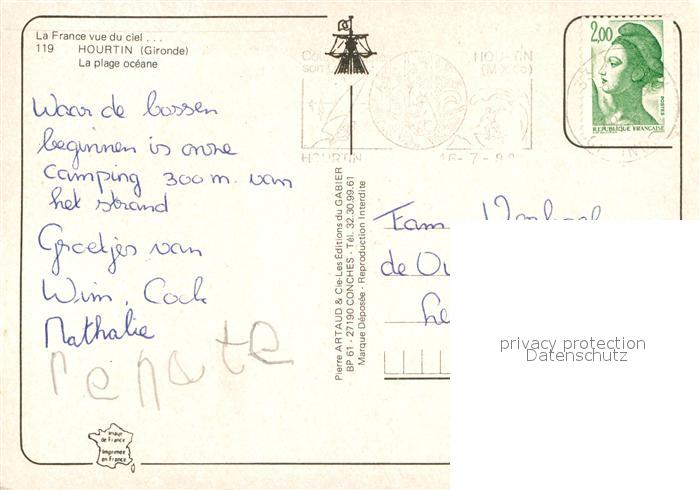 La France vue du ciel ...
119 HOURTIN (Gironde)
La plage océane
Waar de bossen
beginnen is onze
camping 300 m. van
het strand
Groetjes van
Wim, Cock
Nathalie
renate
Image
de France
Imprimée
en France
Pierre ARTAUD & Cie-Les Éditions du GABIER
BP 61 - 27190 CONCHES - Tél. 32.30.99.61
Marque Déposée - Reproduction Interdite
HOURTIN
HOURTIN
16-7-
2,00
POSTES
REPUBLIQUE FRANÇAISE
Fam
de
privacy protection
Datenschutz